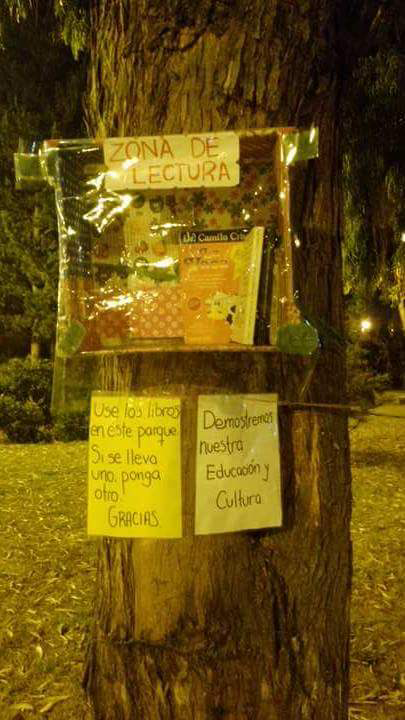 ZONA DE
LECTURA
Camilo
Use los libros
en este parque.
Si se lleva
uno, ponga
otro!
GRACIAS
Demostremos
nuestra
Educación y
Cultura